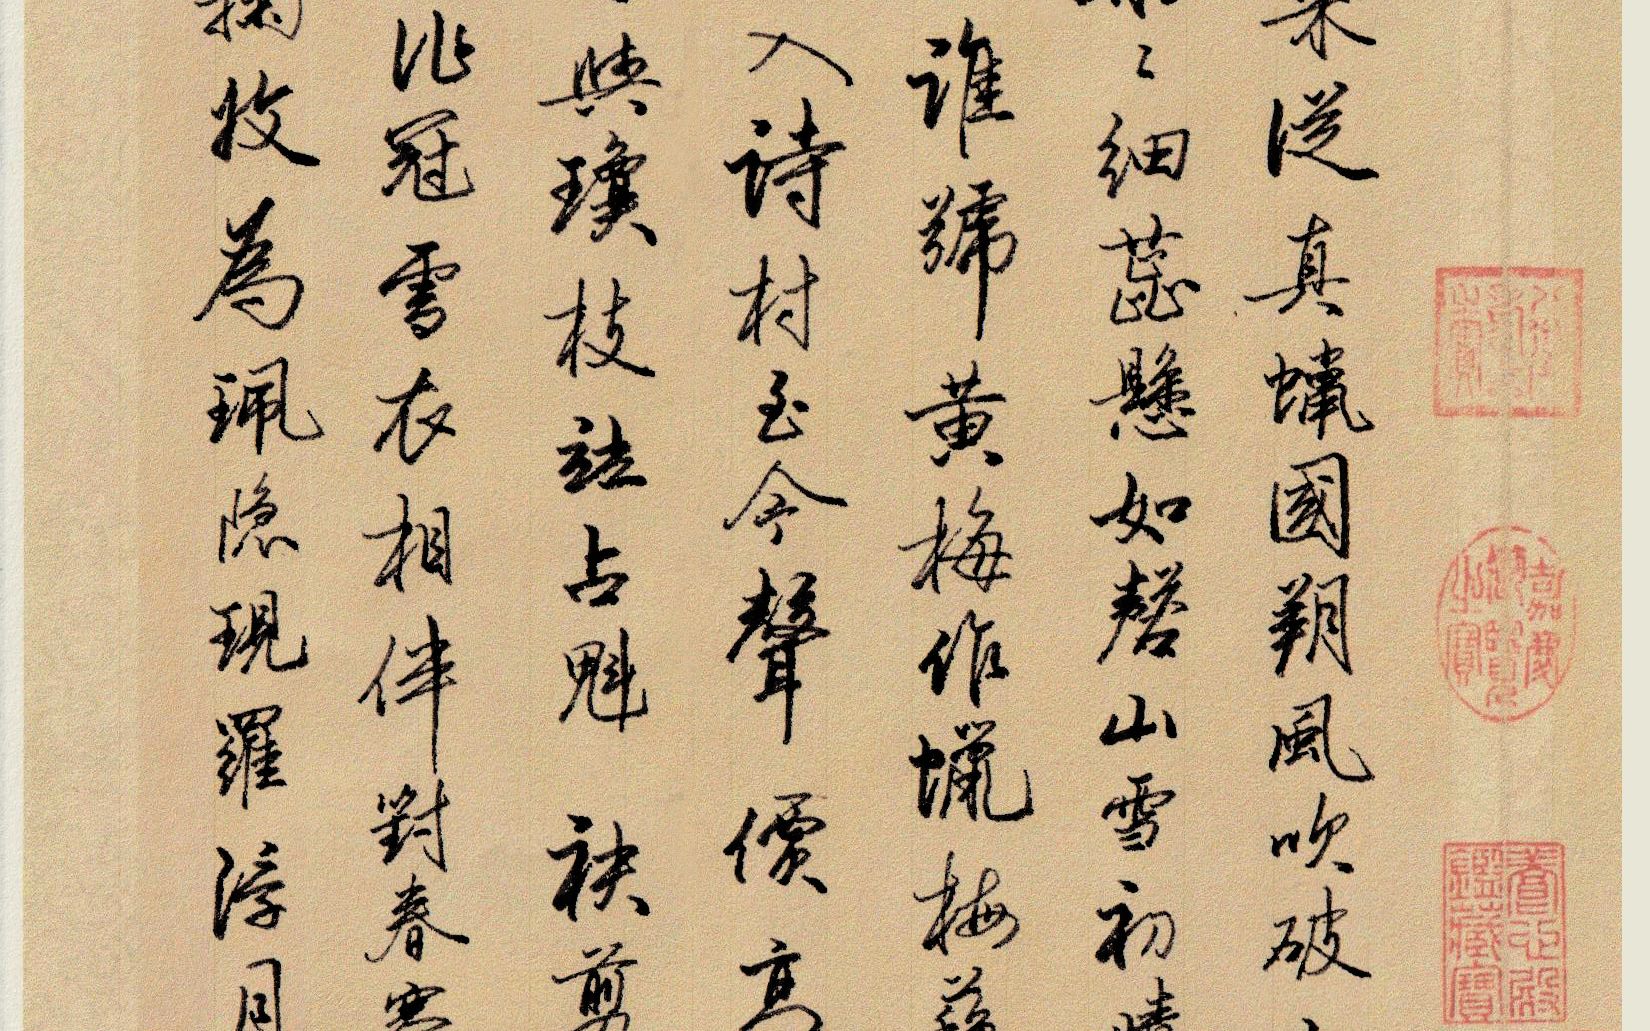 來從真蠟國朔風吹破
〻細蕋懸如磬山雪初晴
誰號黃梅作蠟梅梅落
入詩村至今聲價高
與瓊枝並占魁袂剪
冠雪衣相伴對春寒
牧為珮隐現羅浮月
嘉慶御覽之寶
養心殿鑑藏寶